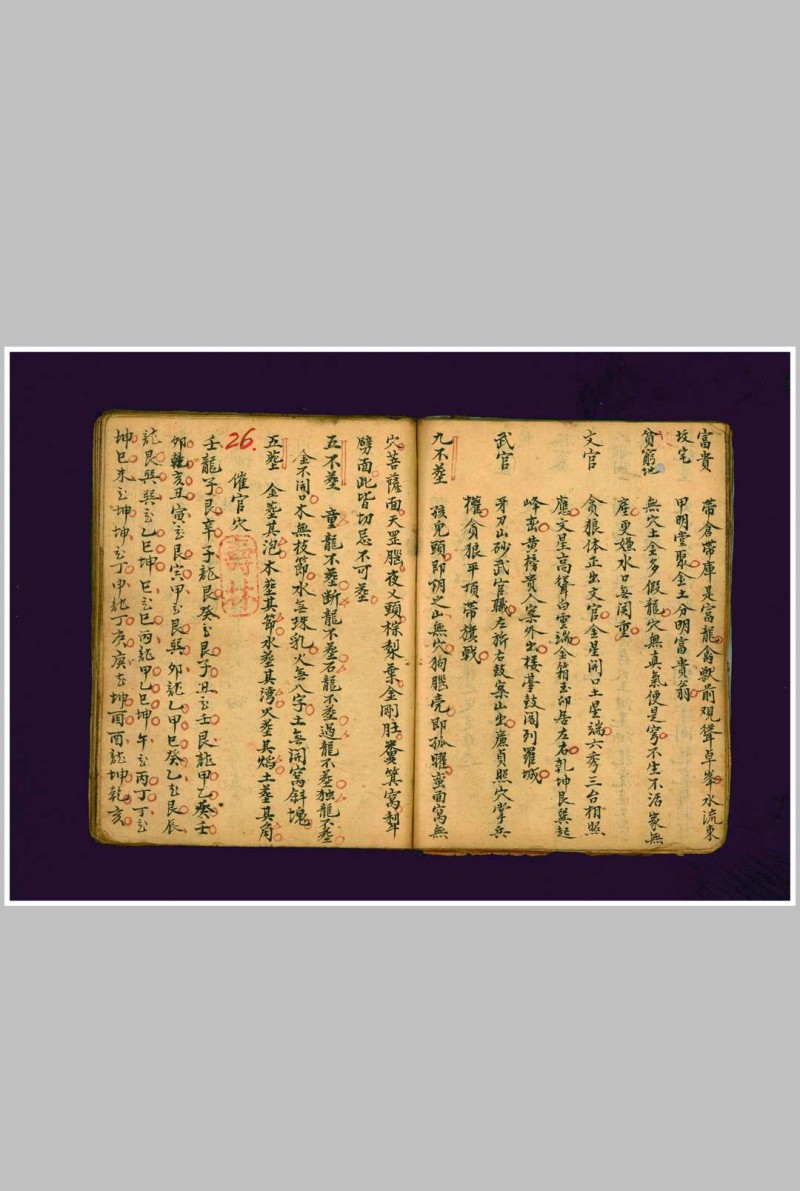 富貴 帶倉帶庫是富龍禽獸前覌聳卓峯水流東
坟宅 甲明堂聚金土分明富貴翁
貧窮地 無穴土金多假龍穴無真氣便是窮不生不活家無
產更嫌水口無関重
文官 貪狼体正出文官金星開口土星端六秀三台相照
應文星高聳白雲端金箱玉印居左右乾坤艮巽起
峰巒黄擔貴人案外出楼臺鼓閣列羅城
武官 牙刀山砂武官職左旂右鼓案山出廉貞照穴掌兵
權貪狼平頂帶旗戟
九不塟 孩兒頭即坍之山無穴狗腦壳即孤曜蛮面窩無
穴菩薩面天罡腦夜乂頭棕梨葉金剛肚糞箕窩犁
劈面此皆切忌不可塟
五不塟 童龍不塟斷龍不塟石龍不塟過龍不塟独龍不塟
金不開口木無枝節水無珠乳火無八字土無開窩斜塊
五塟 金塟其泡木塟其節水塟其湾火塟其焰土塟其角
26.
催官穴
壬龍子艮辛子龍艮癸丑艮子丑丑壬艮龍甲乙癸壬
卯乾亥丑寅丑艮寅甲丑艮巽卯龍乙甲巳癸乙丑艮辰
龍艮巽巽丑乙巳坤巳丑巳丙龍甲乙巳坤午丑丙丁丁丑
坤巳未丑坤坤丑丁申龍丁庚庚在坤酉酉龍坤乾亥